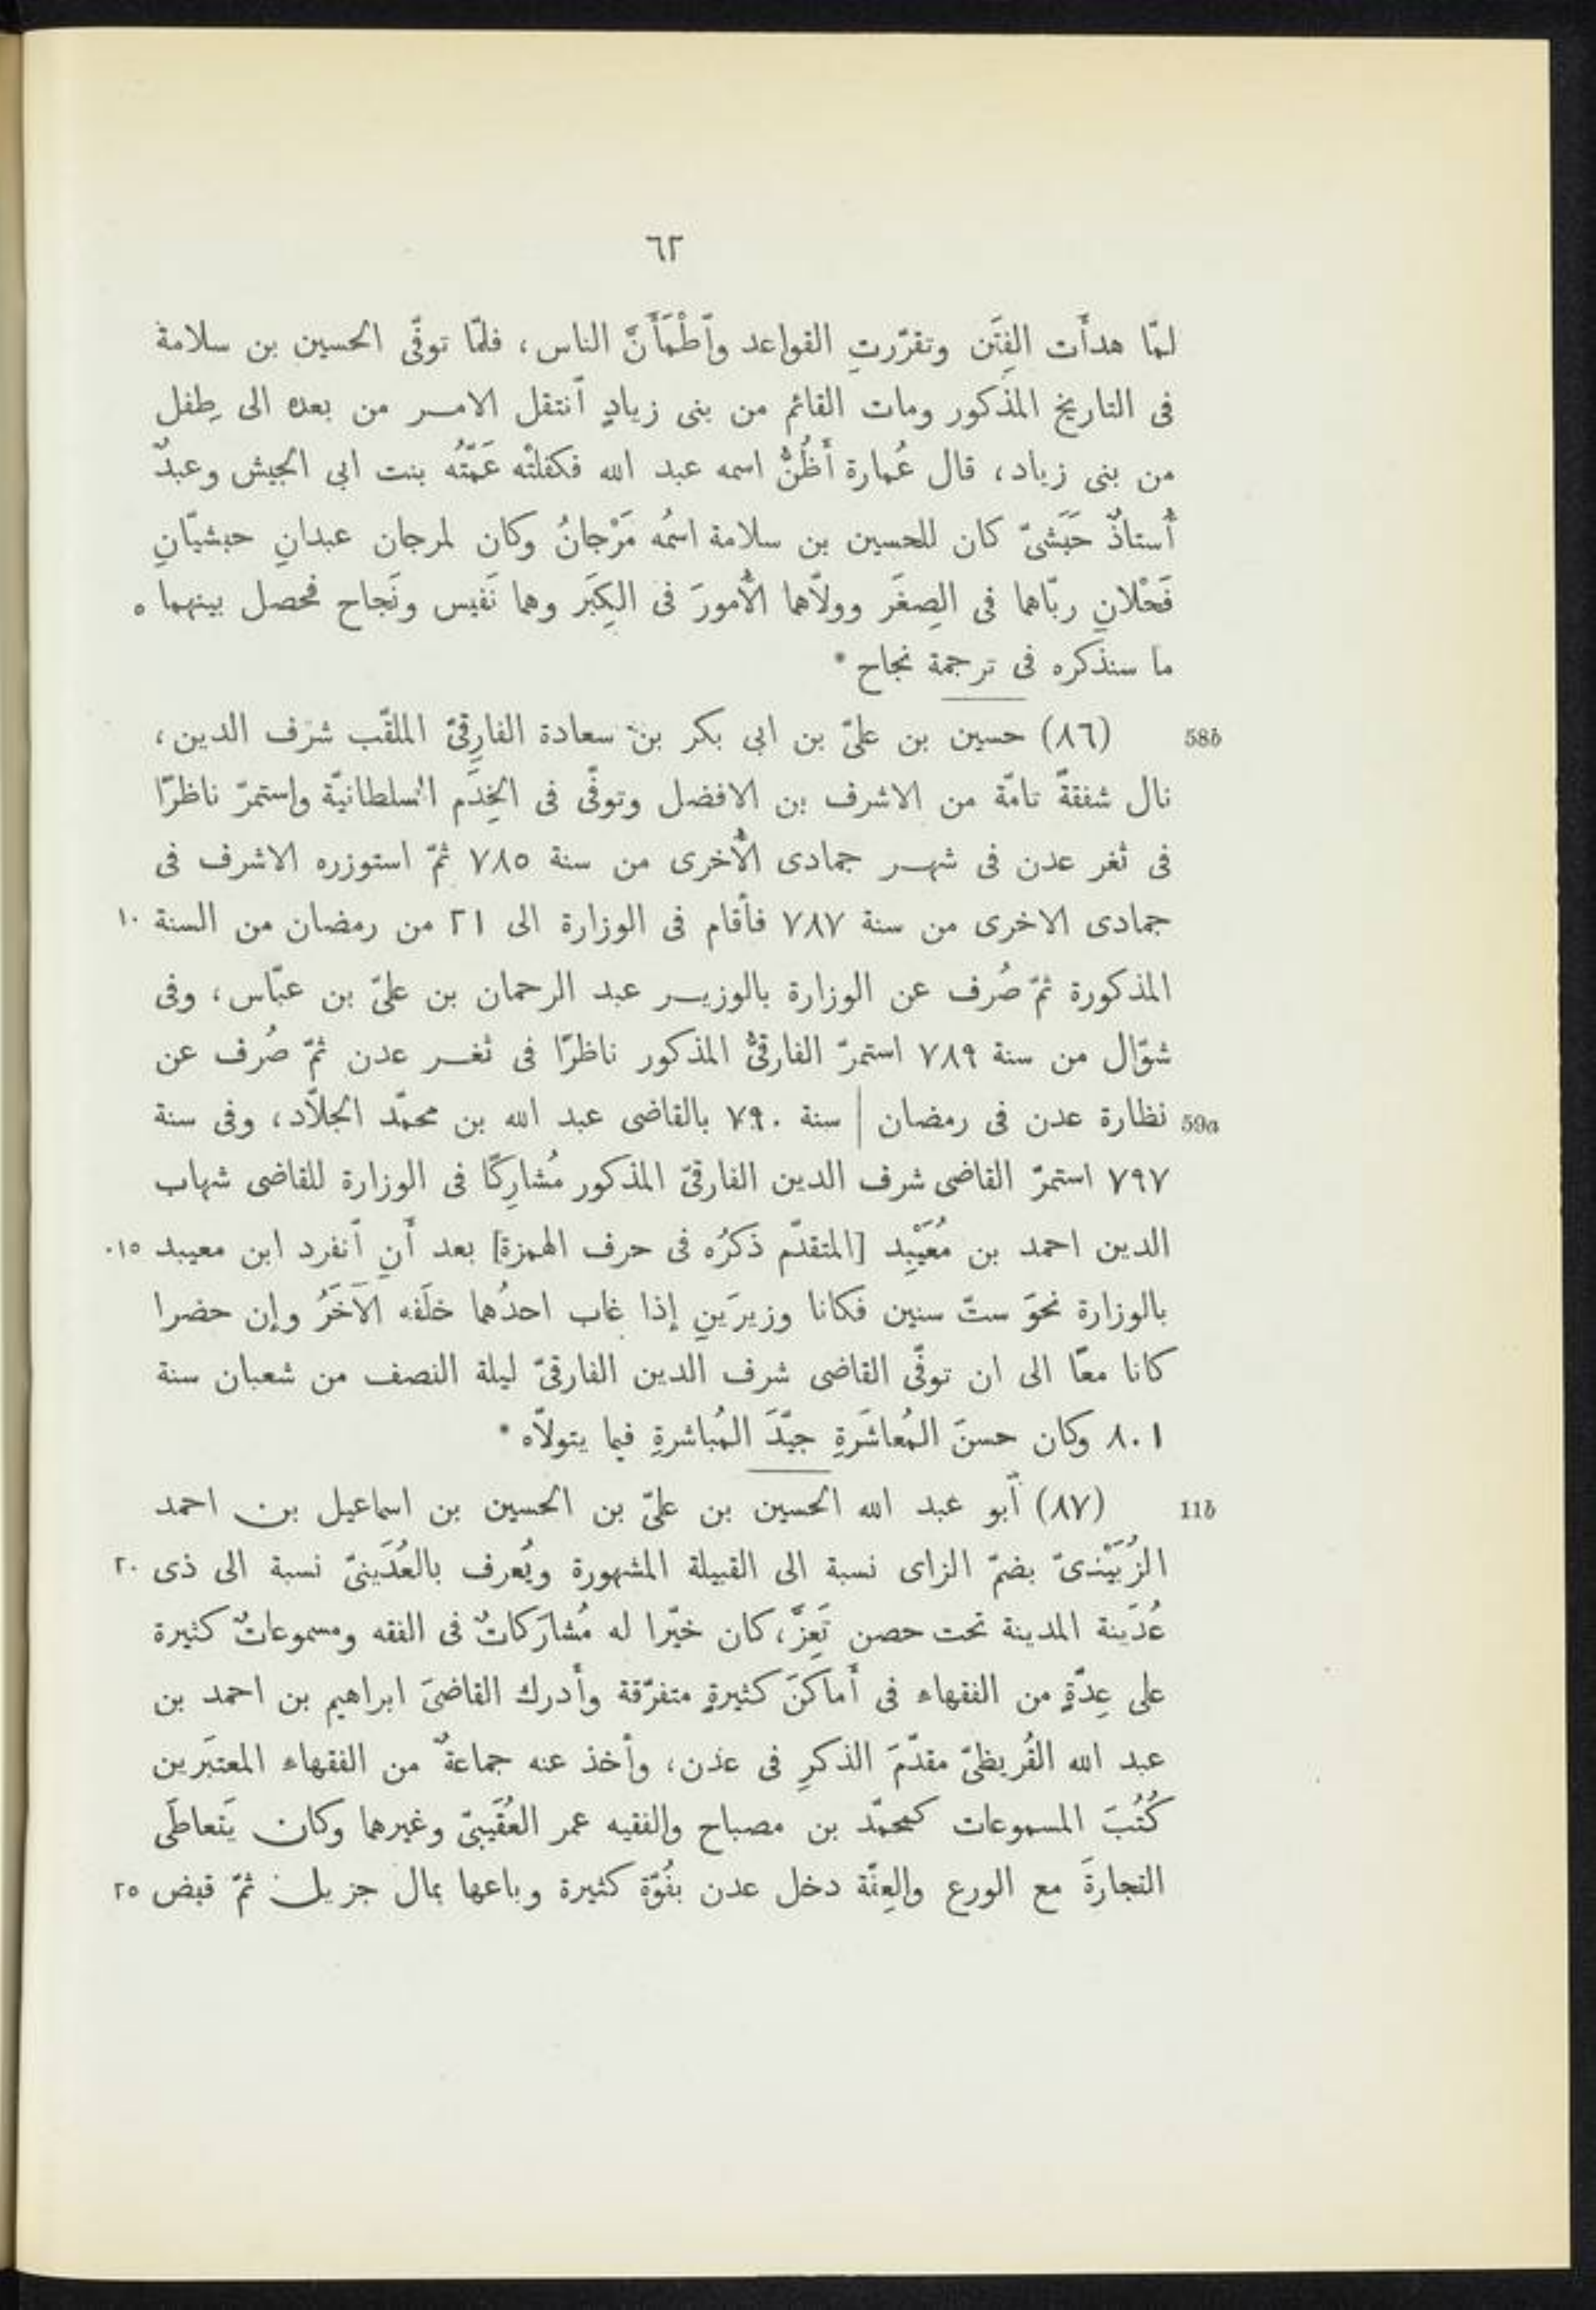 ٦٢
لمّا هدأَت الفِتَن وتقرّرتِ القواعد وٱطْمَأَنَّ الناس، فلمّا توفّى الحسين بن سلامة
فى التاريخ المذكور ومات القائم من بنى زيادٍ ٱنتقل الامر من بعده الى طِفل
من بنى زياد، قال عُمارة أَظُنُّ اسمه عبد الله فكفلَتْه عَمَّتُه بنت ابى الجيش وعبدٌ
أُستاذٌ حَبَشىّ كان للحسين بن سلامة اسمُه مَرْجانُ وكان لمرجان عبدانِ حبشيّانِ
فَحْلانِ ربّاهما فى الصِغَر وولاّهما الأُمورَ فى الكِبَر وهما نَفيس ونَجاح فحصل بينهما ٥
ما سنذكره فى ترجمة نجاح *
58b (٨٦) حسين بن علىّ بن ابى بكر بن سعادة الفارِقىّ الملقّب شرَف الدين،
نال شفقةً تامّة من الاشرف بن الافضل وتوفّى فى الخِدَم السلطانيّة واستمرّ ناظرًا
فى ثغر عدن فى شهر جمادى الأُخرى من سنة ٧٨٥ ثمّ استوزره الاشرف فى
جمادى الاخرى من سنة ٧٨٧ فأقام فى الوزارة الى ٢١ من رمضان من السنة ١٠
المذكورة ثمّ صُرف عن الوزارة بالوزير عبد الرحمان بن علىّ بن عبّاس، وفى
شوّال من سنة ٧٨٩ استمرّ الفارقىُّ المذكور ناظرًا فى ثغر عدن ثمّ صُرف عن
59a نظارة عدن فى رمضان | سنة ٧٩٠ بالقاضى عبد الله بن محمّد الجلاّد، وفى سنة
٧٩٧ استمرّ القاضى شرف الدين الفارقىّ المذكور مُشارِكًا فى الوزارة للقاضى شهاب
الدين احمد بن مُعَيْبِد [المتقدّم ذكرُه فى حرف الهمزة] بعد أَنِ ٱنفرد ابن معيبد ١٥
بالوزارة نحوَ ستّ سنين فكانا وزيرَينِ إذا غاب احدُهما خلَفه الآخَرُ وإن حضرا
كانا معًا الى ان توفّى القاضى شرف الدين الفارقىّ ليلة النصف من شعبان سنة
٨٠١ وكان حسنَ المُعاشَرةِ جيّدَ المُباشرةِ فيما يتولاّه *
11b (٨٧) أَبو عبد الله الحسين بن علىّ بن الحسين بن اسماعيل بن احمد
الزُبَيْدىّ بضمّ الزاى نسبة الى القبيلة المشهورة ويُعرف بالعُدَينىّ نسبة الى ذى ٢٠
عُدَينة المدينة تحت حصن تَعِزَّ، كان خيّرا له مُشارَكاتٌ فى الفقه ومسموعاتٌ كثيرة
على عِدّةٍ من الفقهاء فى أَماكنَ كثيرةٍ متفرّقة وأَدرك القاضىَ ابراهيم بن احمد بن
عبد الله القُريظىّ مقدّمَ الذكرِ فى عدن، وأخذ عنه جماعةٌ من الفقهاء المعتبَرين
كُتُبَ المسموعات كمحمّد بن مصباح والفقيه عمر العُقَيبىّ وغيرهما وكان يَتعاطَى
التجارةَ مع الورع والعِفّة دخل عدن بفُوّة كثيرة وباعها بمال جزيل ثمّ قبض ٢٥